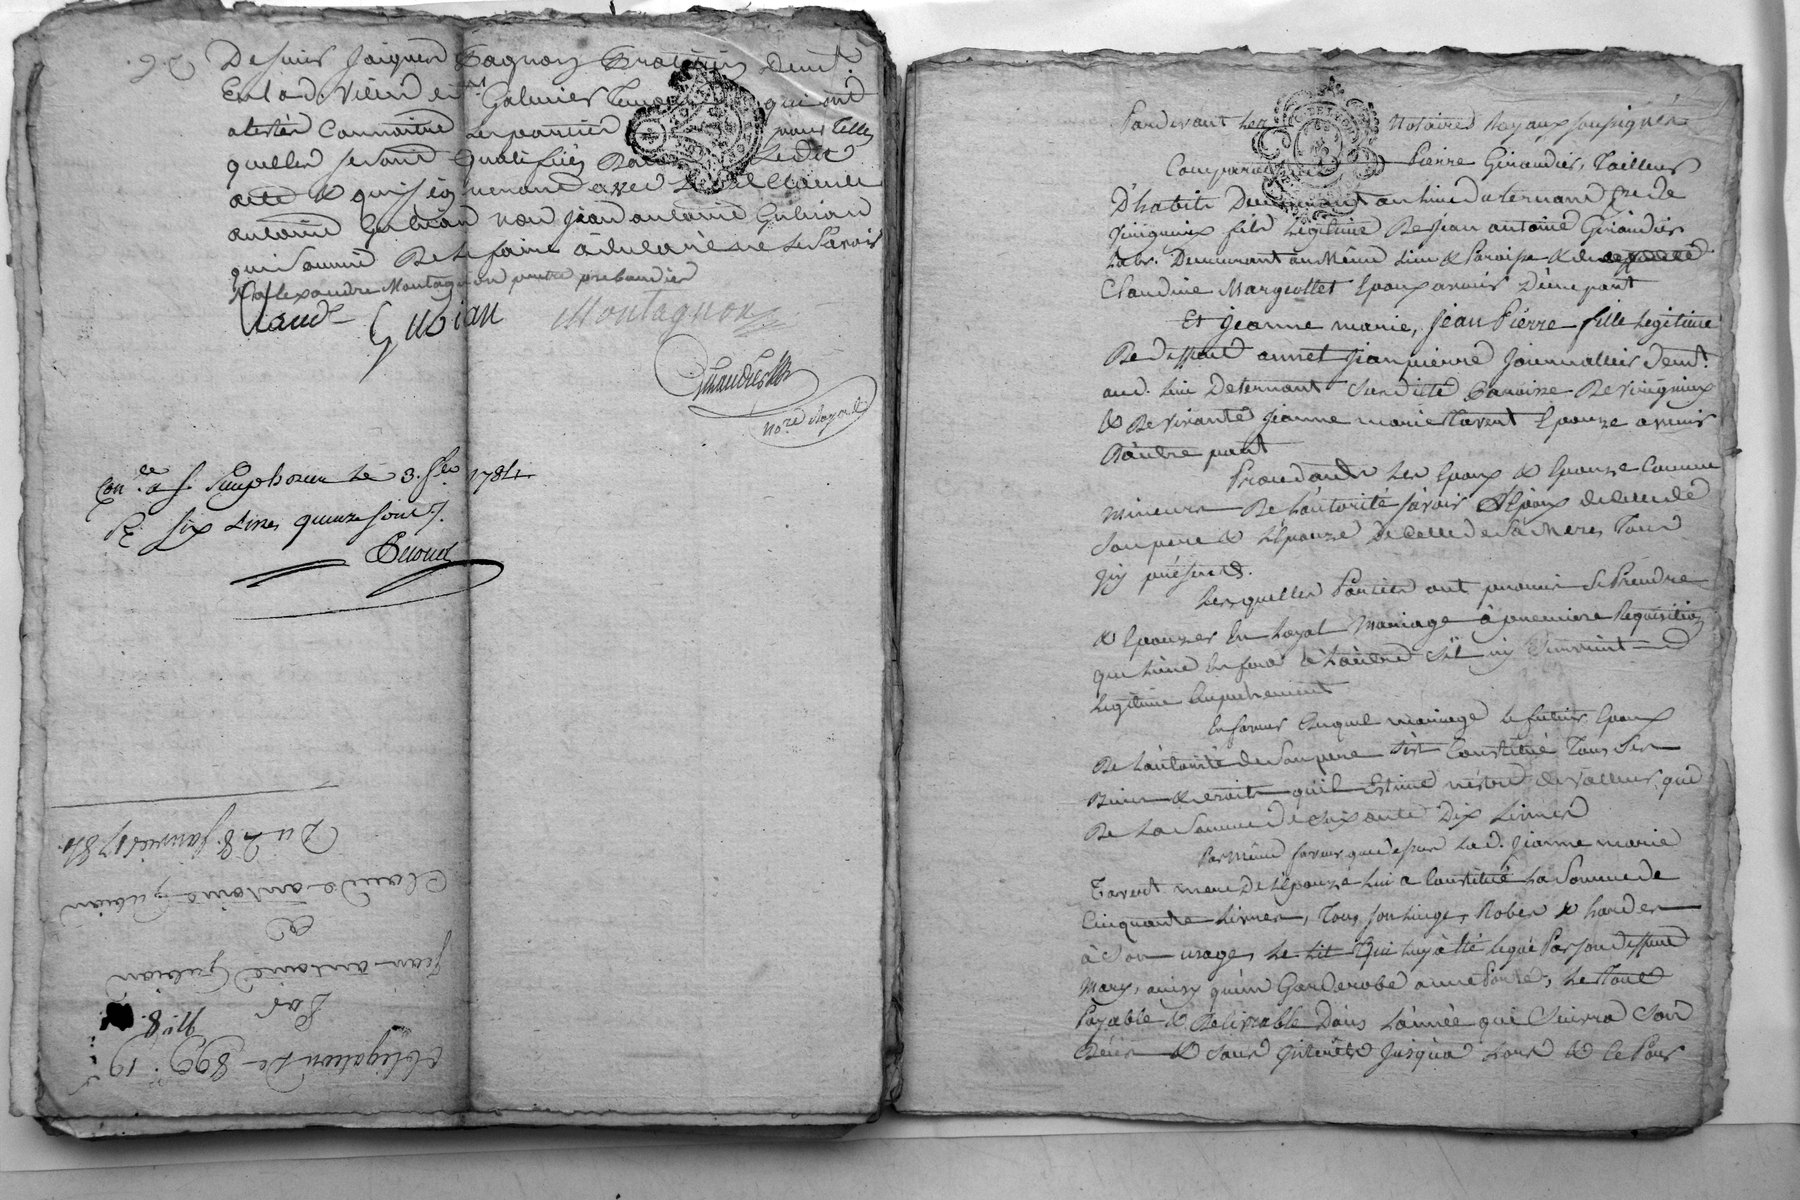 De Sieur Jacques Pagnon Praticien Demt.
En lad. ville de st. Galmier qui ont
atesté Connoitre les parties pour telles
quelles se sont qualifiées Dans Ledit
acte & qui signeront avec Led. Claude
antoine Gubian non Jean antoine Gubian
qui Sommé De le faire à declaré ne le Savoir
Alexandre Montagnon pretre prebandier
Claude Gubian Montagnon
nore Royal
Conlée a st. Simphorien Le 3. fer 1784
R. six Livres quinze sous
Du 28. Janvier 1784
Claude antoine Gubian
a
Jean antoine Gubian
Par
no. 8.
obligation De 899 19
Pardevant Les Notaires Royaux soussignés
Comparant Pierre Giraudier, Tailleur
D'habits Demeurant au lieu du ternant psse de
Viriqneux fils Legitime De Jean antoine Giraudier
Labr. Demeurant au Même Lieu & Paroisse & de
Claudine Margottet Epoux avenir D'une part
Et Jeanne marie, Jean Pierre fille Legitime
De deffunt annet Jean pierre Journallier demt.
aud. Lieu De ternant Susditte Paroisse De Viriqneux
& De vivante Jeanne marie Tavent Epouze avenir
D'autre part
Procedants Les Epoux & Epouze Comme
mineurs De l'autorité savoir l'Epoux de celle de
Son pere & L'Epouze De Celle de Sa Mere, Tous
Icy présents.
Lesquelles Parties ont promis Se Prendre
& Epouzer En Loyal Mariage à premiere Requisition
que L'une En fera à L'autre S'il n'y Survient
Legitime Empechement
En faveur Duquel mariage Le futur Epoux
De L'autorité de Son pere s'est Constitué Tous Ses
Biens & droits qu'il Estime n'être de valleur que
De La Somme de soixante Dix Livres
Par Même faveur que dessus Lad. Jeanne marie
Tavent mere De L'Epouze Lui a Constitué La Somme de
Cinquante Livres, Tous son Linge, Robes & hardes
à Son usage, Le Lit Qui luy à été legué Par son deffunt
Mary, ainsy qu'un Garderobe a une Porte, Le Tout
Payable & Delivrable Dans L'année qui Suivra Son
Décès & Sans Interêts Jusqu'a Lors & Ce Pour